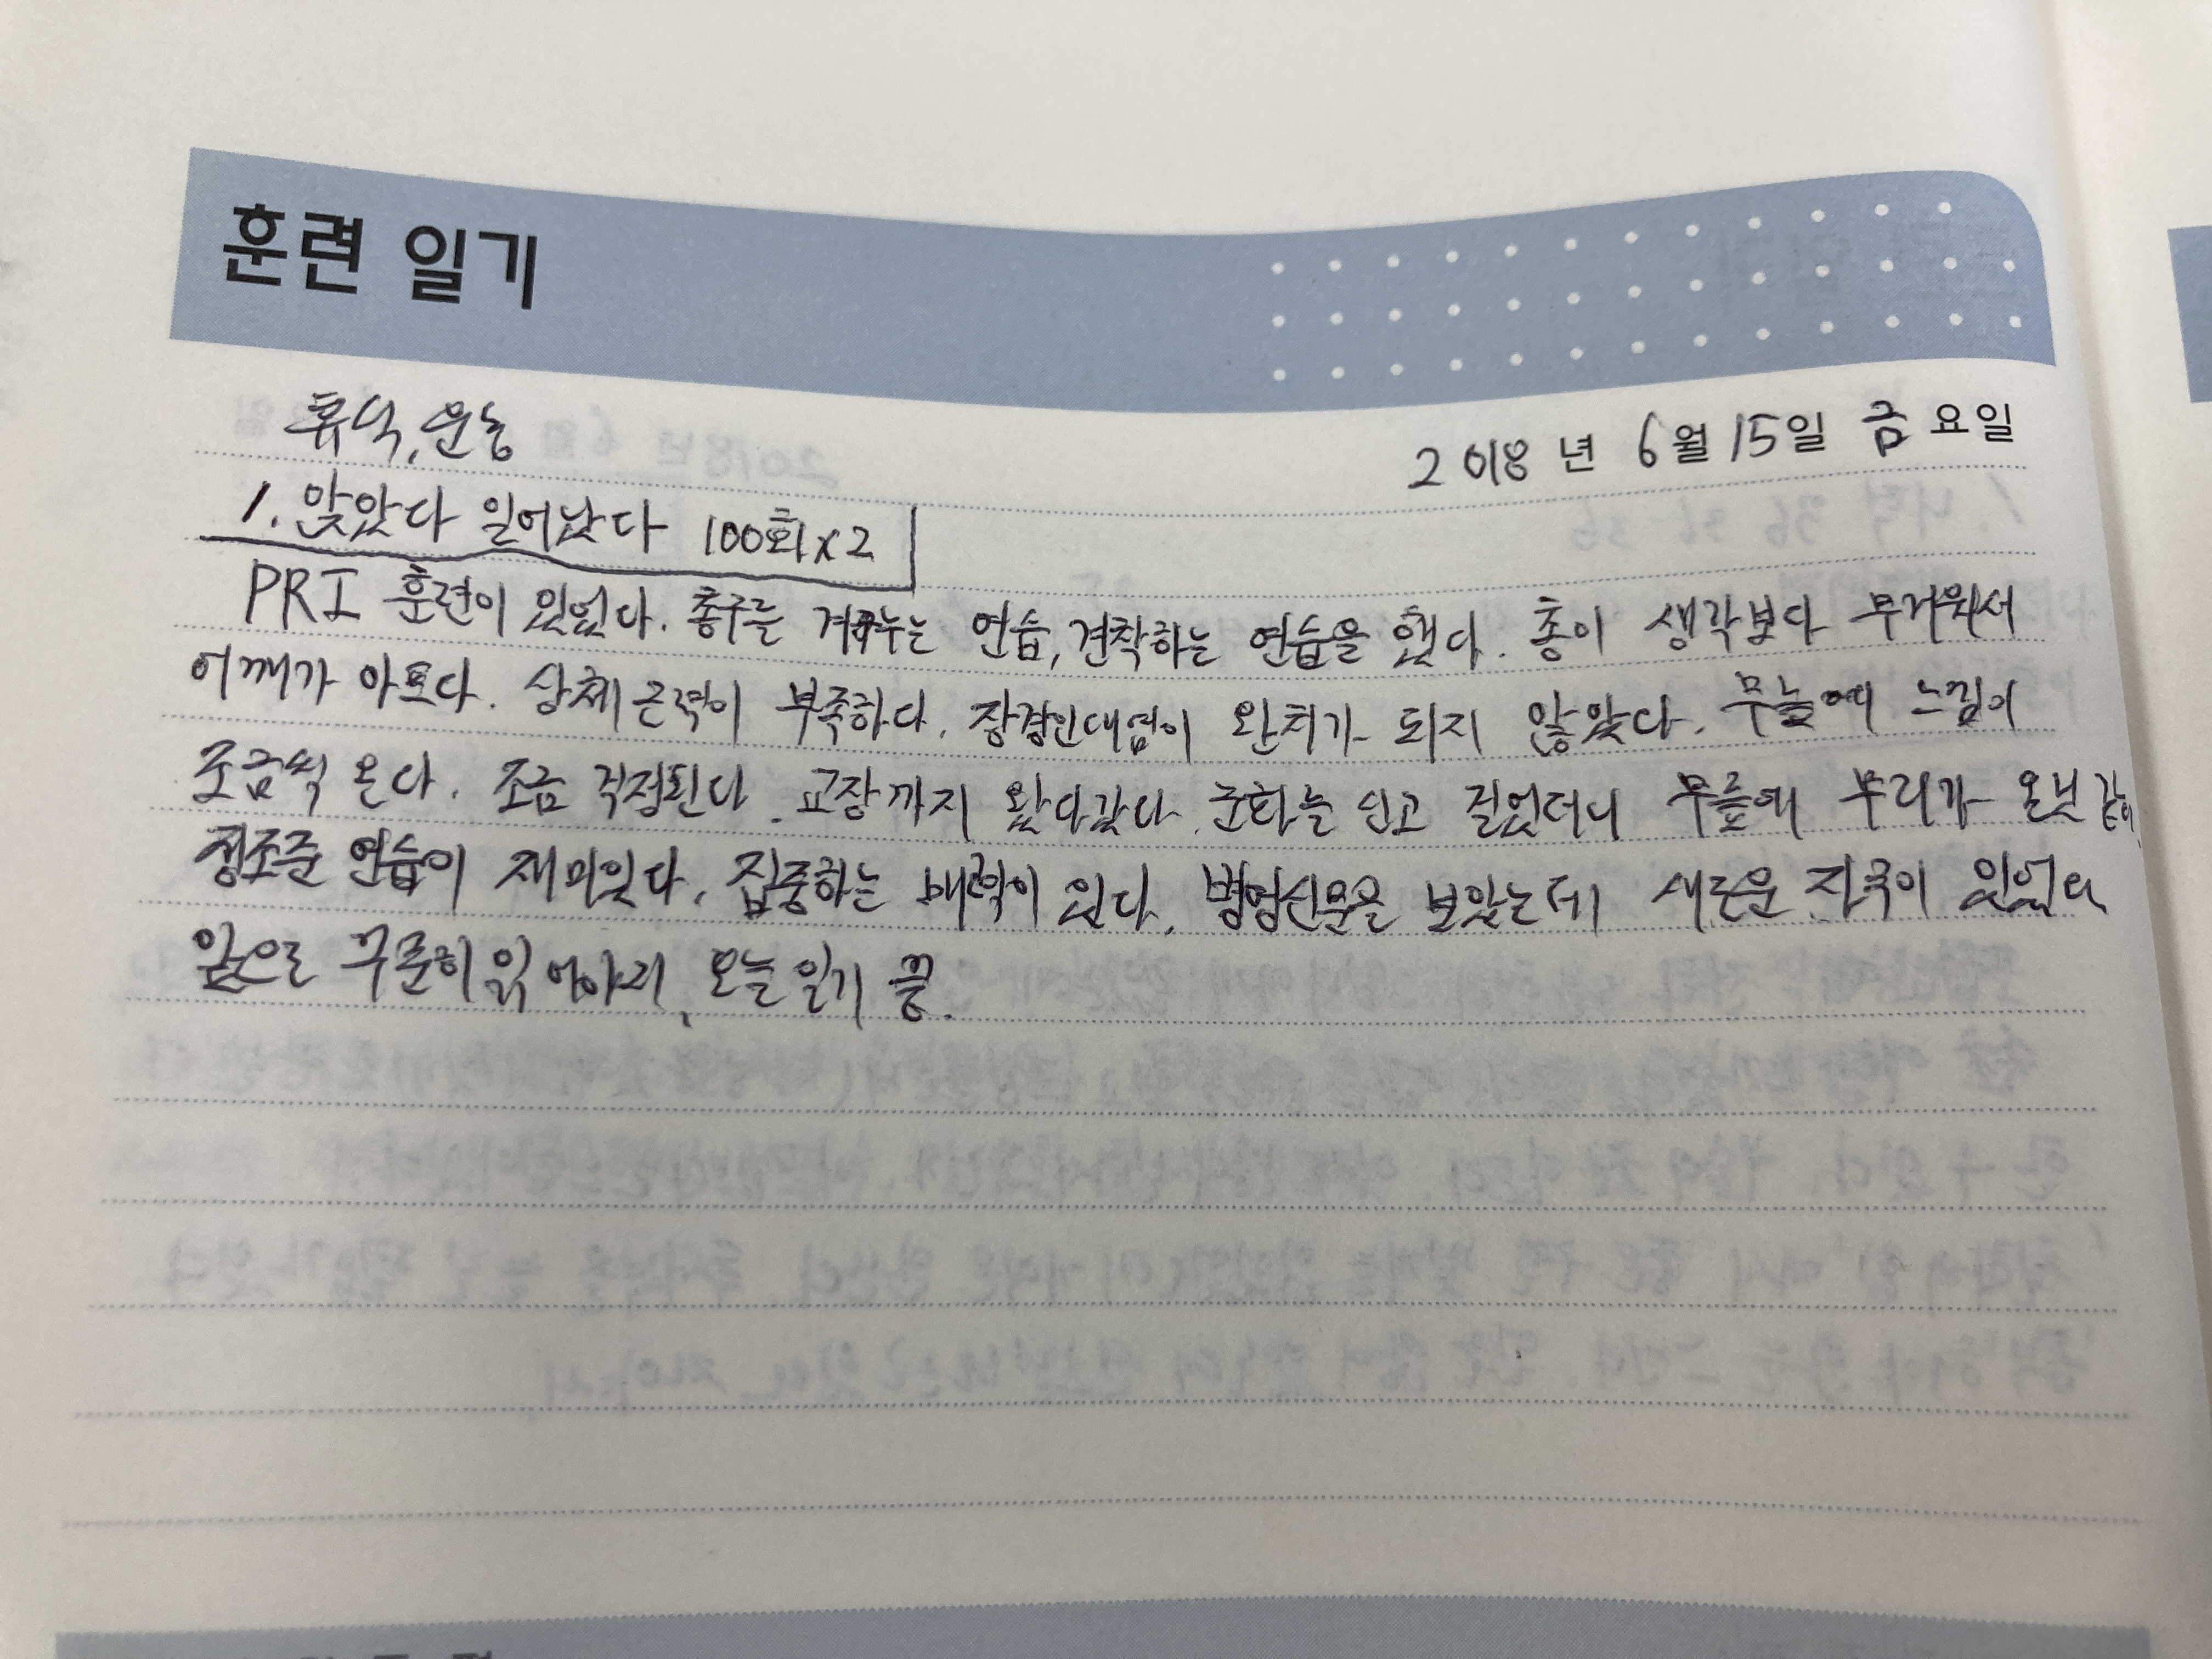 훈련 일기
휴식, 운동
2018년 6월 15일 금요일
1. 앉았다 일어났다 100회x2
PRI 훈련이 있었다. 총구를 겨누는 연습, 견착하는 연습을 했다. 총이 생각보다 무거워서
어깨가 아프다. 상체 근력이 부족하다. 장경인대염이 완치가 되지 않았다. 무릎에 느낌이
조금씩 온다. 조금 걱정된다. 교장까지 왔다갔다 군화를 신고 걸었더니 무릎에 무리가 온것 같아
정조준 연습이 재미있다. 집중하는 매력이 있다. 병영신문을 보았는데 새로운 자극이 있었다
앞으로 꾸준히 읽어야지. 오늘 일기 끝.